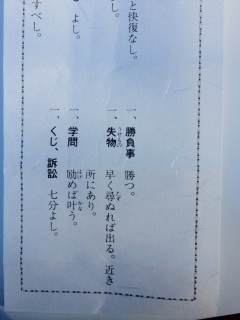 と快復なし。
し。
よし。
すべし。
一、勝負事　勝つ。
一、失物　早く尋ぬれば出る。近き
所にあり。
一、学問　励めば叶う。
一、くじ、訴訟　七分よし。